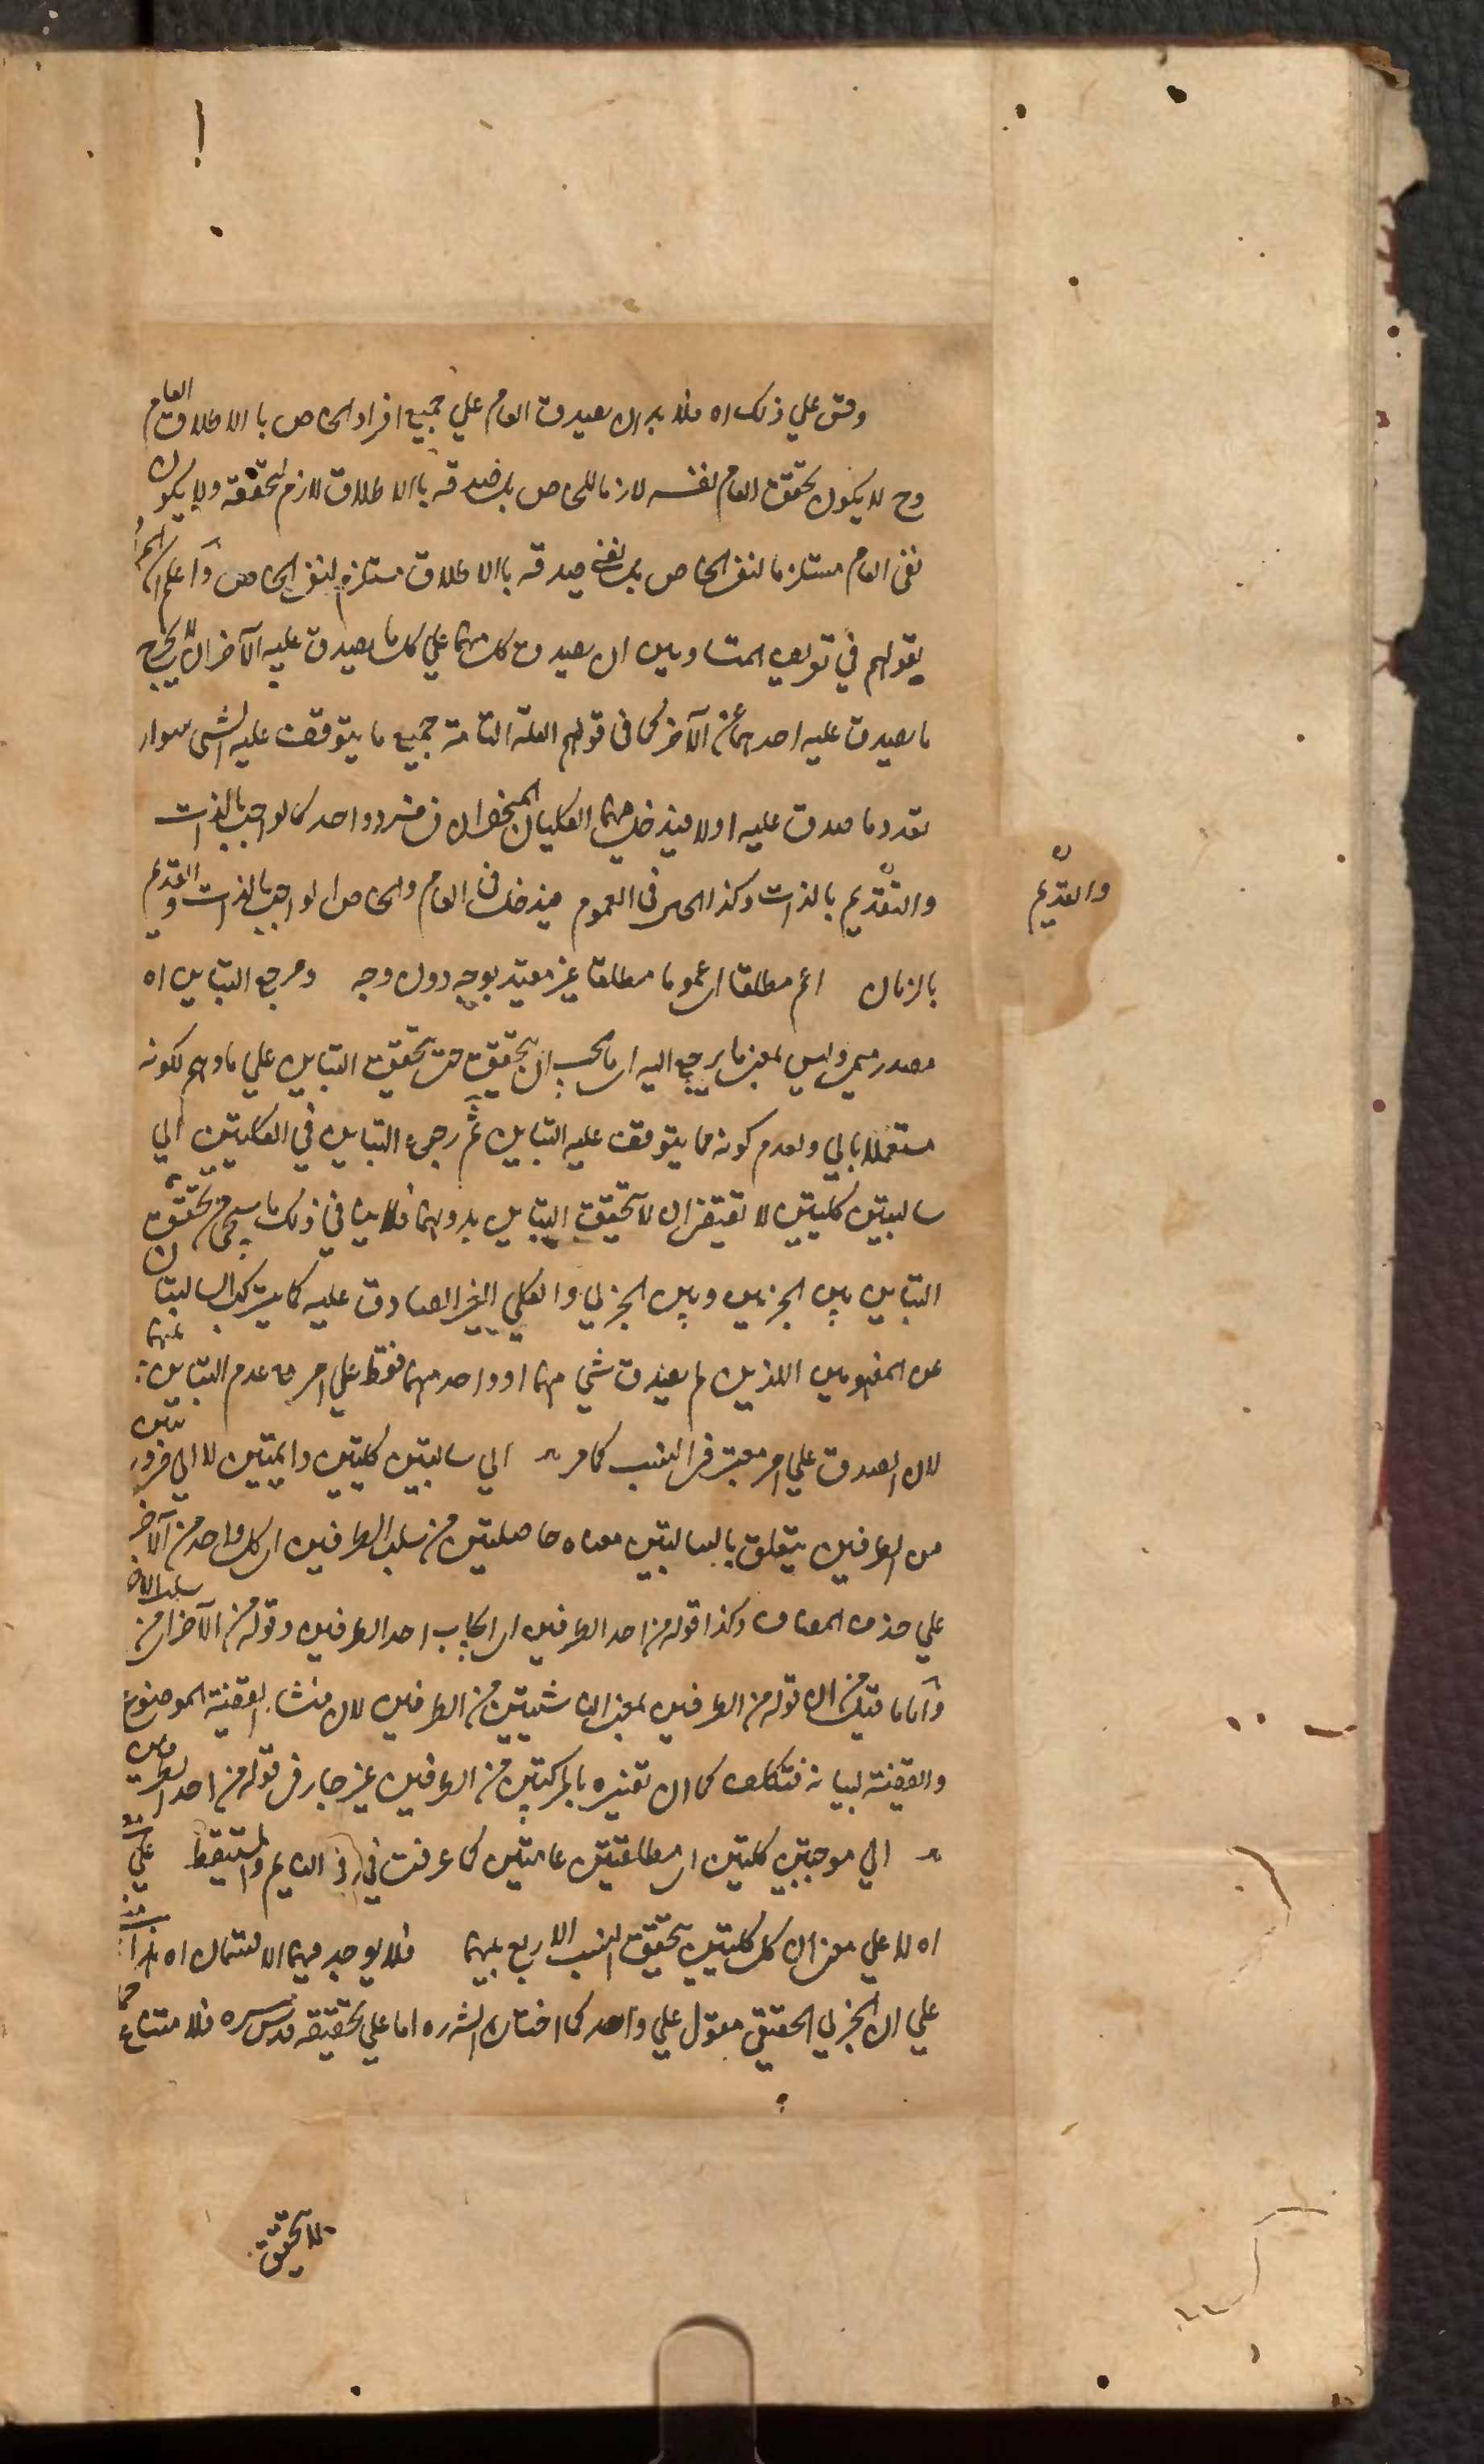 وقس علي ذلك اه فلا بد ان يصدق العام علي جميع افراد الخاص با الاطلاق العام
وح لا يكون تحقق العام نفسه لازما للخاص بل صدقه باالاطلاق لازم لتحققه ولا يكون
نفى العام مستلزما لنفى الخاص بل نفى صدقه باالاطلاق مستلزم لنفى الخاص واعلم ان المراد
بقولهم في تعريف المتساويين ان يصدق كل منهما علي كل ما يصدق عليه الآخر ان لا يخرج
ما يصدق عليه احدهما عن الآخر كما فى قولهم العلة التامة جميع ما يتوقف عليه الشى سواء
تعدد ما صدق عليه اولا فيدخل فيهما الكليان المنحصران فى فرد واحد كالواجب بالذات
والقديم بالذات وكذا الحال فى العموم فيدخل فى العام والخاص الواجب بالذات والقديم
والقديم
بالزمان اعم مطلقا اى عموما مطلقا غير مقيد بوجه دون وجه ومرجع التباين اه
مصدر ميمى وليس بمعنى ما يرجع اليه اى ما يجب ان يتحقق حتى يتحقق التباين علي ما وهم لكونه
مستعملا بالي ولعدم كونه مما يتوقف عليه التباين ثم رجوع التباين في الكليتين الي
سالبتين كليتين لا تقتضى ان لا يتحقق التباين بدونهما فلا ينافي ذلك ما سيجئ من تحقق
التباين بين الجزئيين وبين الجزئي والكلي الغير الصادق عليه كما يشترك السالبتان
عن المفهومين اللذين لم يصدق شي منهما او واحد منهما فقط علي امر مع عدم التباين بينهما
لان الصدق علي امر معتبر فى النسب كما مر الي سالبتين كليتين دايمتين لا الي ضروريتين
من الطرفين يتعلق بالسالبتين معناه حاصلتين من سلب الطرفين اى كل واحد من الآخر
علي حذف المضاف وكذا قوله من احد الطرفين اى ايجاب احد الطرفين وقوله من الآخر اى من سلب الاخر
واما ما قيل من ان قوله من الطرفين بمعنى ناشيتين من الطرفين لان منشاء القضية الموضوع
والقضية لبيانه فتكلف كما ان تفسيره بالمركبتين من الطرفين غير جار فى قوله من احد الطرفين
الي موجبتين كليتين اى مطلقتين عامتين كما عرفت في النايم والمستيقظ علي
اه لا علي معنى ان كل كليتين يتحقق النسب الاربع بينهما فلا يوجد فيهما الا القسمان اه هذا
علي ان الجزئي الحقيقي مقول علي واحد كما اختاره الشره اما علي تحقيقه قدس سره فلا متناع
فلا تحقق